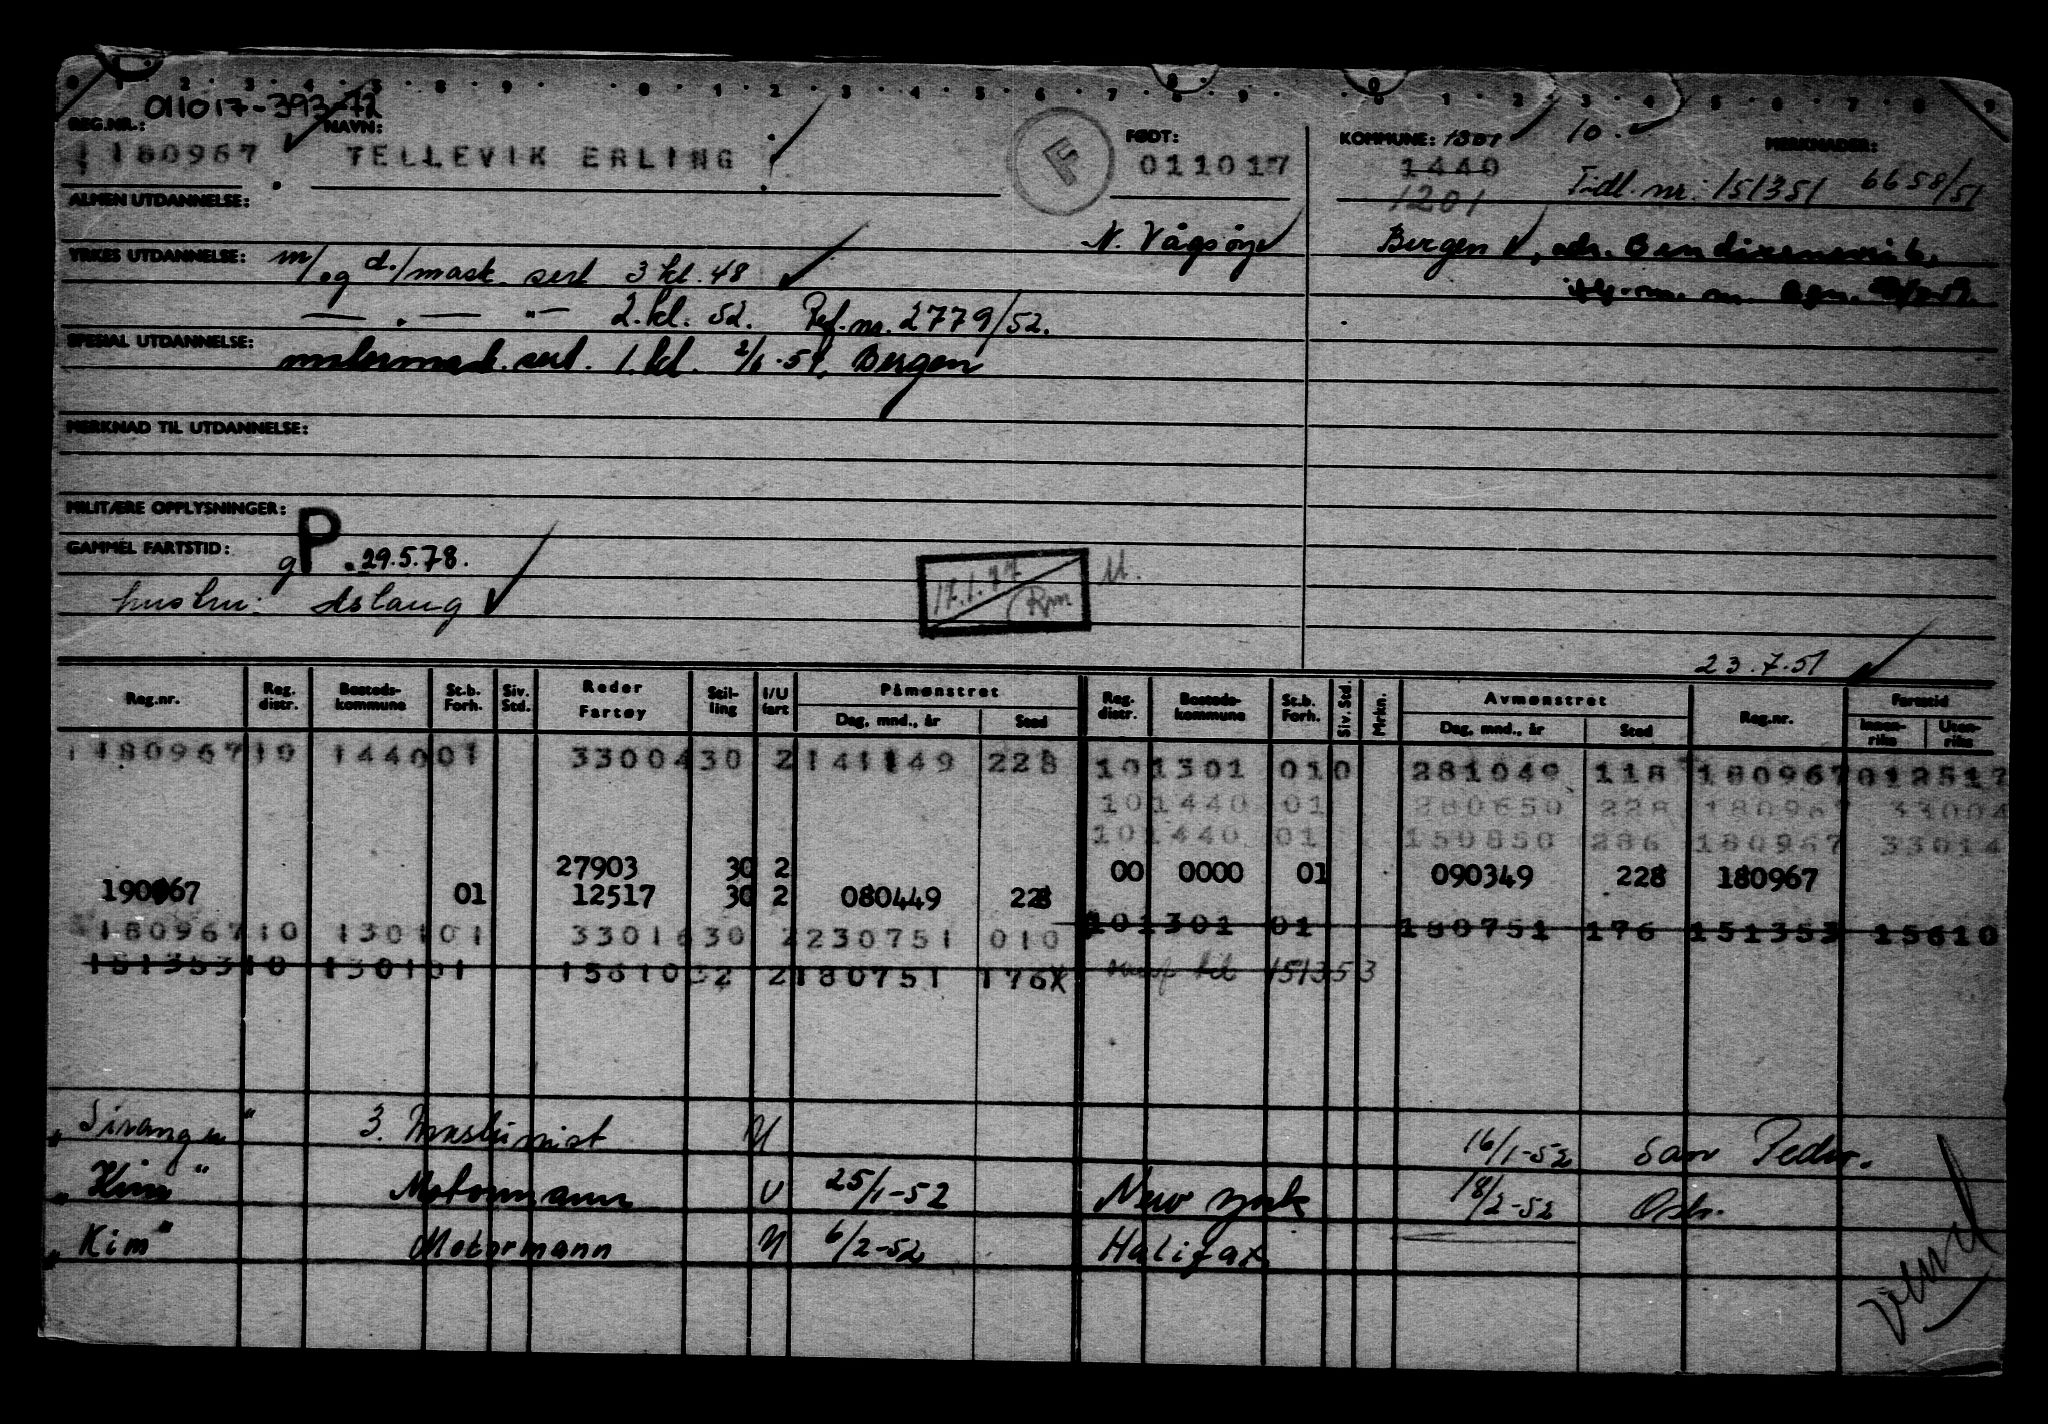 011017-393-72
REG.NR.: NAVN: FØDT: KOMMUNE: 1301 10. MERKNADER:
180967 TELLEVIK ERLING F 011017 1440 Tidl. nr. 151351 6658/51
1201
ALMEN UTDANNELSE:
N. Vågsøy Bergen
YRKES UTDANNELSE: m/og d./mask. sert 3 kl. 48
— . — " — 2. kl. 52. Ref. nr. 2779/52.
SPESIAL UTDANNELSE:
motormask. sert. 1. kl. 2/6-54, Bergen
MERKNAD TIL UTDANNELSE:
MILITÆRE OPPLYSNINGER:
GAMMEL FARTSTID: gP. 29.5.78.
17.1.77 Rm M.
hustru: Aslaug
23.7.51
Reg.nr. Reg. distr. Bosteds- kommune St.b. Forh. Siv. Std. Reder Fartøy Stil- ling I/U fart Påmønstret Dag, mnd., år Sted Reg. distr. Bosteds- kommune St.b. Forh. Siv. Std. Mrkn. Avmønstret Dag, mnd., år Sted Reg.nr. Farstid Innen- riks Uten- riks
180967 10 1440 01 33004 30 2 141149 228 10 1301 01 0 281049 118 180967 012517
10 1440 01 280650 228 180967 33004
10 1440 01 150850 286 180967 33014
27903 30 2 00 0000 01 090349 228 180967
190967 01 12517 30 2 080449 228
180967 10 1301 01 33016 30 2 230751 010 10 1301 01 180751 176 151353 15610
151353 10 1301 01 15610 32 2 180751 176X til 151353
"Siranger" 3. Maskinist U 16/1-52 San Pedro.
"Kim" Motormann U 25/1-52 New York 18/2-52 Oslo.
"Kim" Motormann U 6/2-52 Halifax